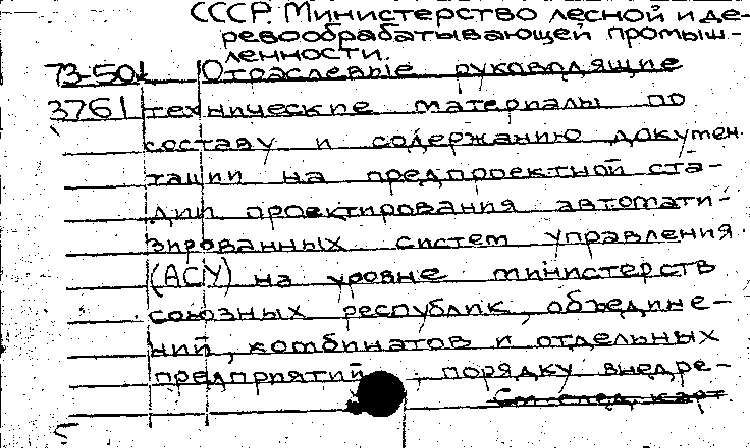 СССР. Министерство лесной и де-
ревообрабатывающей промыш-
ленности.
73-50 Отраслевые руководящие
3761 технические материалы по
составу и содержанию докумен-
тации на предпроектной ста-
дии проектирования автомати-
зированных систем управления
(АСУ) на уровне министерств
союзных республик, объедине-
ний, комбинатов и отдельных
предприятий, порядку внедре-
См. след. карт.
5